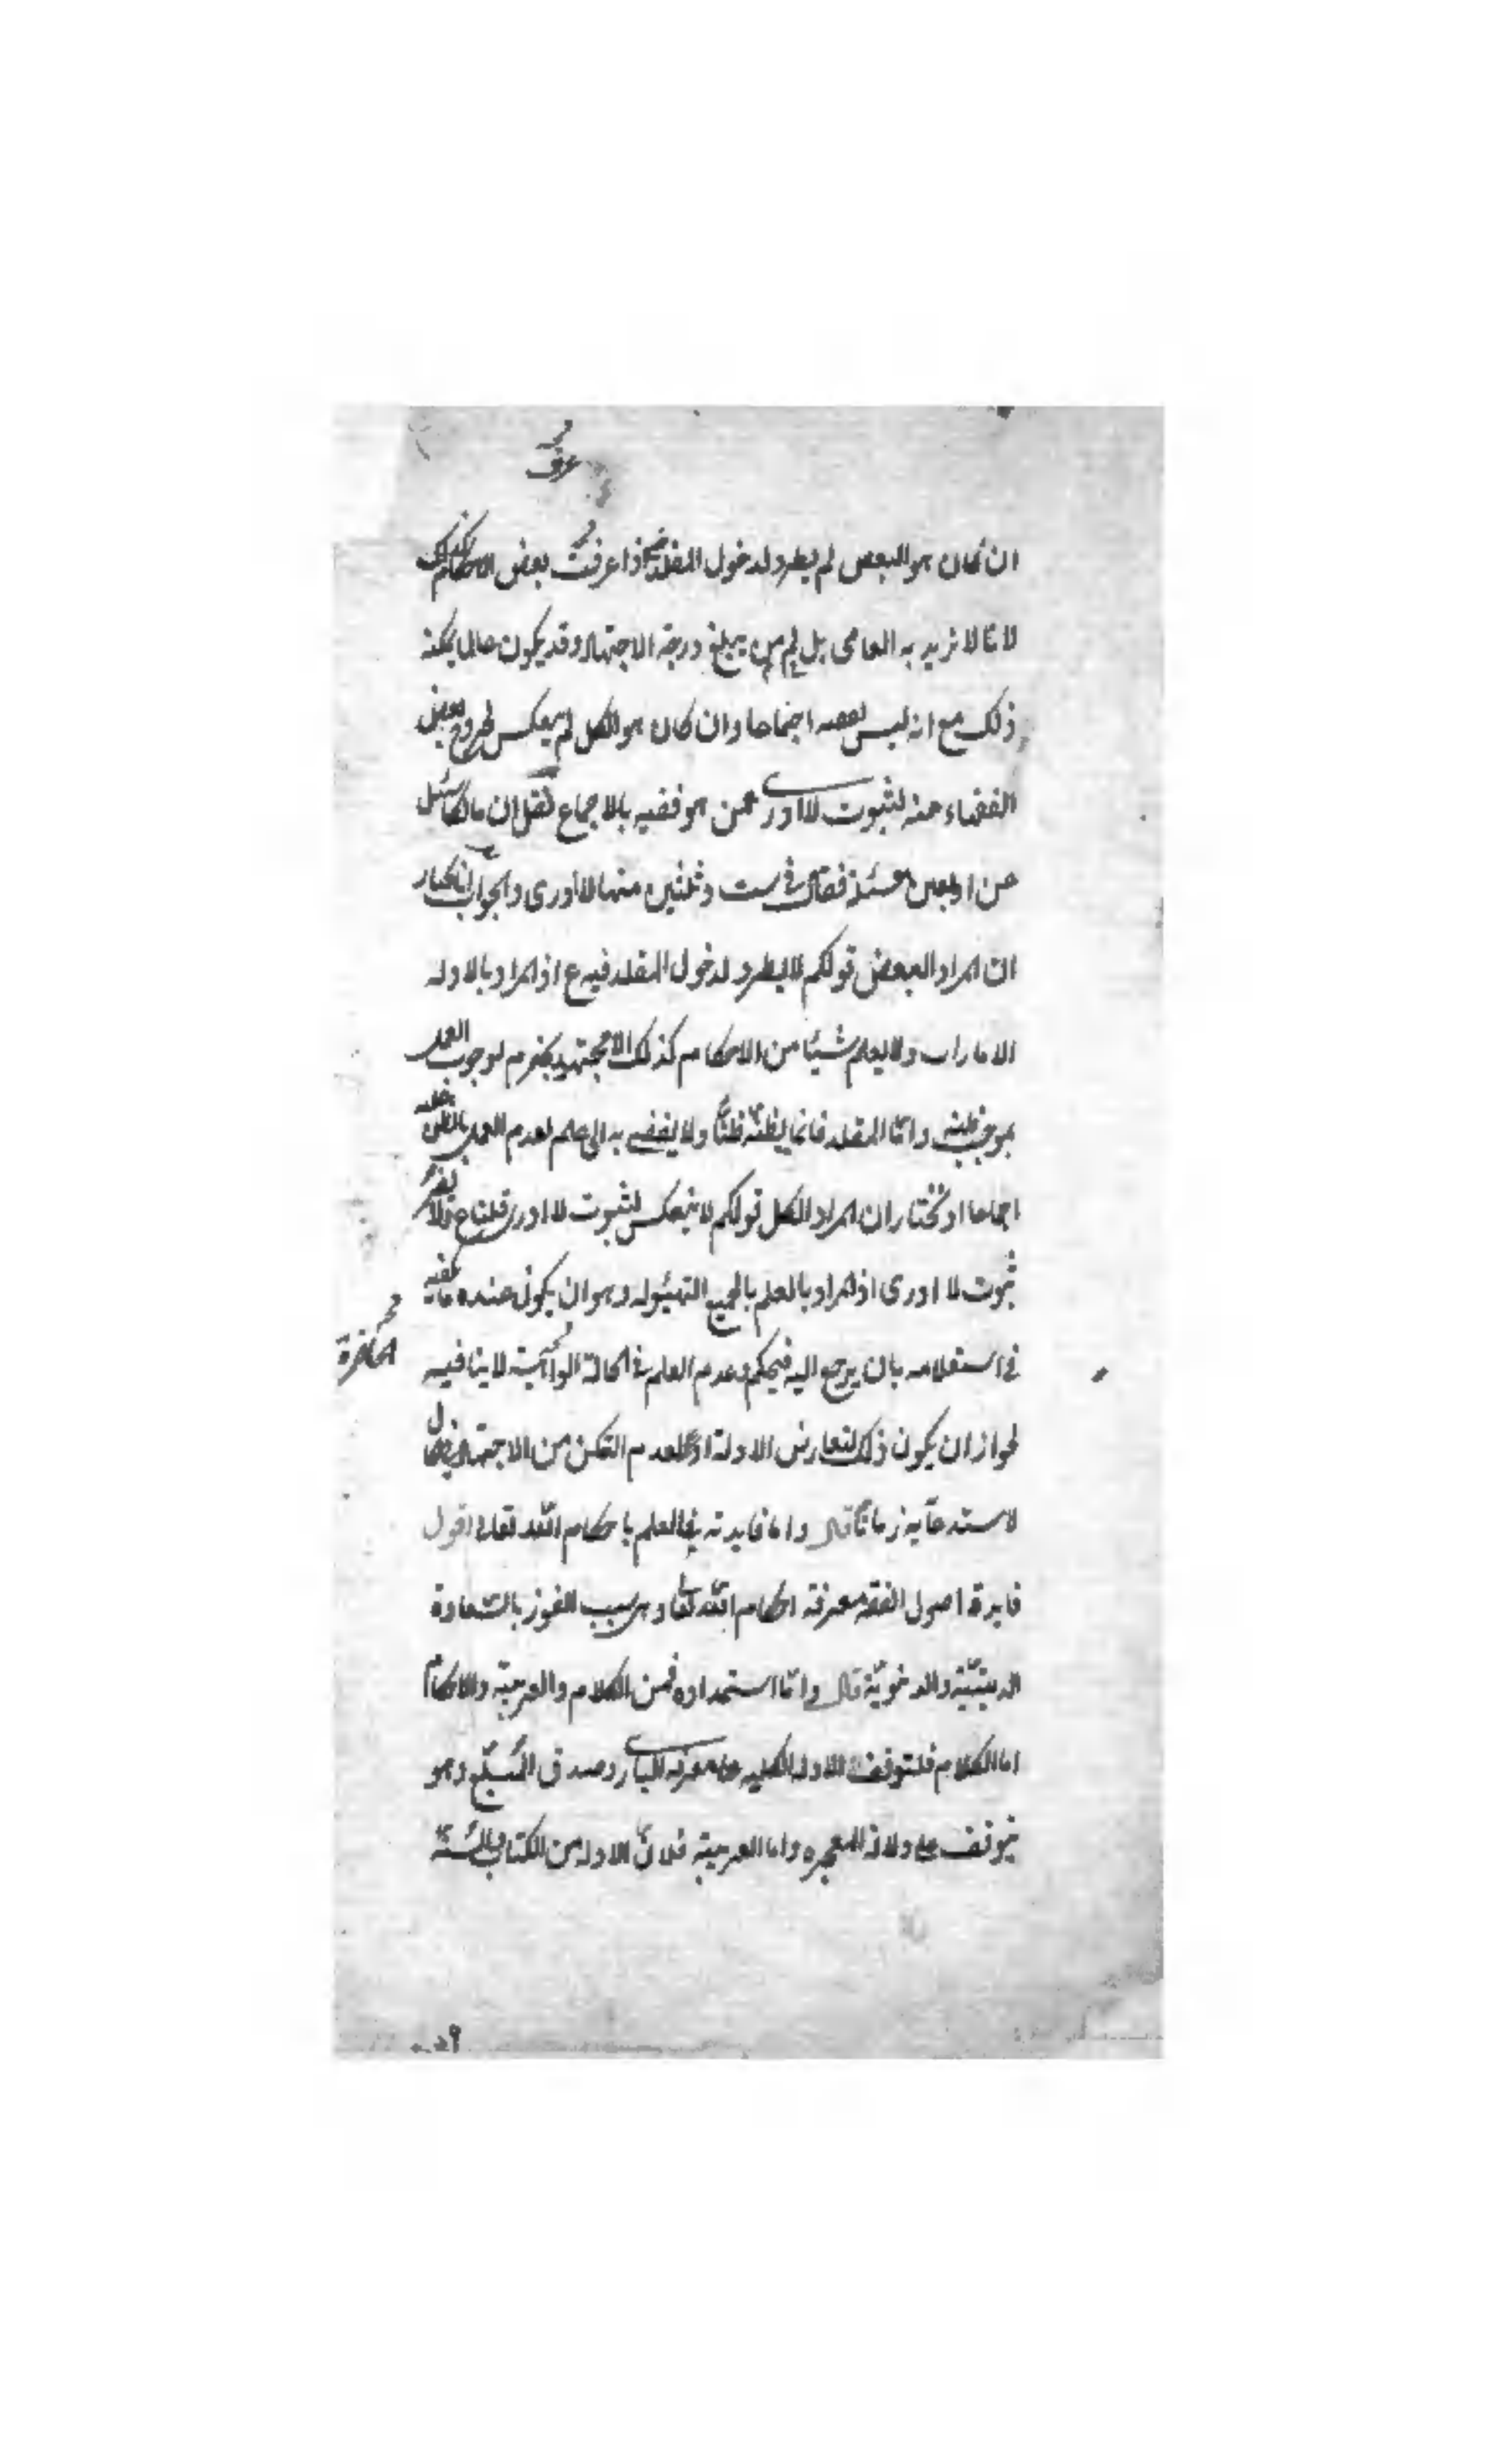 عرف
ان كان هو البعض لم يطرد لدخول المقلد اذا عرفت بعض الاحكام كذلك
لانا لا نريد به العامى بل من لم يبلغ درجة الاجتهاد وقد يكون عالما يمكنه
ذلك مع انه ليس بفقيه اجماعا وان كان هو الكل لم ينعكس لخروج بعض
الفقهاء عنه لثبوت لا ادرى عمن هو فقيه بالاجماع نقل ان مالكا سئل
عن اربعين مسئلة فقال فى ست وثلثين منها لا ادرى والجواب انا نختار
ان المراد البعض قولكم لا يطرد لدخول المقلد فيه ع اذ المراد بالادلة
الامارات ولا يعلم شيئا من الاحكام كذلك الا مجتهد يجزم لوجوب العمل
بموجب ظنه واما المقلد فانما يظنه ظنا ولا يفضى به الى علم لعدم العمل بالظن عليه
اجماعا او نختار ان المراد الكل قولكم لا ينعكس لثبوت لا ادرى قلنا ع ولا
ثبوت لا ادرى اذ المراد بالعلم بالجميع التهيئو له وهو ان يكون عنده ما يكفيه
فى استعلامه بان يرجع اليه فيحكم وعدم العلم فى الحالة الراهنة لا ينافيه
الحاضرة
لجواز ان يكون ذلك لتعارض الادلة او لعدم التمكن من الاجتهاد فى الحال
لاستدعائه زمانا قال واما فايدته فالعلم باحكام الله تعالى اقول
فايدة اصول الفقه معرفة احكام الله تعا وهى سبب الفوز بالسعادة
الدينية والدنوية قال واما استمداده فمن الكلام والعربية والاحكام
اما الكلام فلتوقف الادلة الكلية على معرفة البارى وصدق المبلغ وهو
يتوقف على دلالة المعجزه واما العربية فلان الادلة من الكتاب والسنة